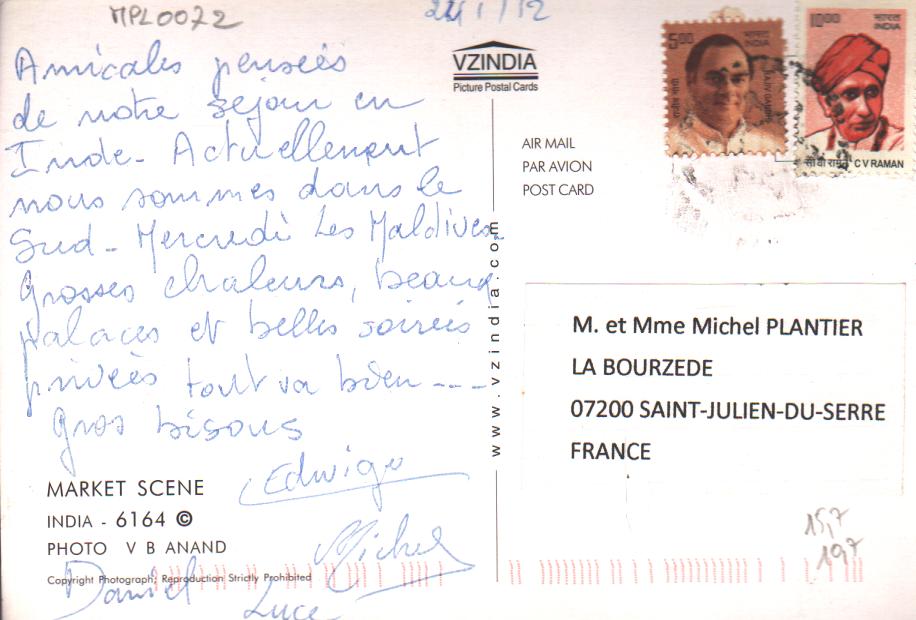 MPL0072
24/1/12
Amicales pensées
de notre séjour en
Inde. Actuellement
nous sommes dans le
Sud. Mercredi Les Maldives.
Grosses chaleurs, beaux
palaces et belles soirées
privées tout va bien ---
Gros bisous
Edwige
Michel
Daniel
Luce
MARKET SCENE
INDIA - 6164 ©
PHOTO V B ANAND
Copyright Photograph, Reproduction Strictly Prohibited
VZINDIA
Picture Postal Cards
www.vzindia.com
AIR MAIL
PAR AVION
POST CARD
500
भारत
INDIA
राजीव गांधी
RAJIV GANDHI
10.00
भारत
INDIA
सी वी रामन C V RAMAN
M. et Mme Michel PLANTIER
LA BOURZEDE
07200 SAINT-JULIEN-DU-SERRE
FRANCE
15,7
19,7